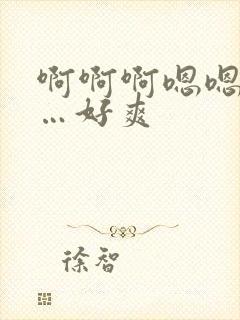 啊啊啊嗯嗯
…好爽
徐智